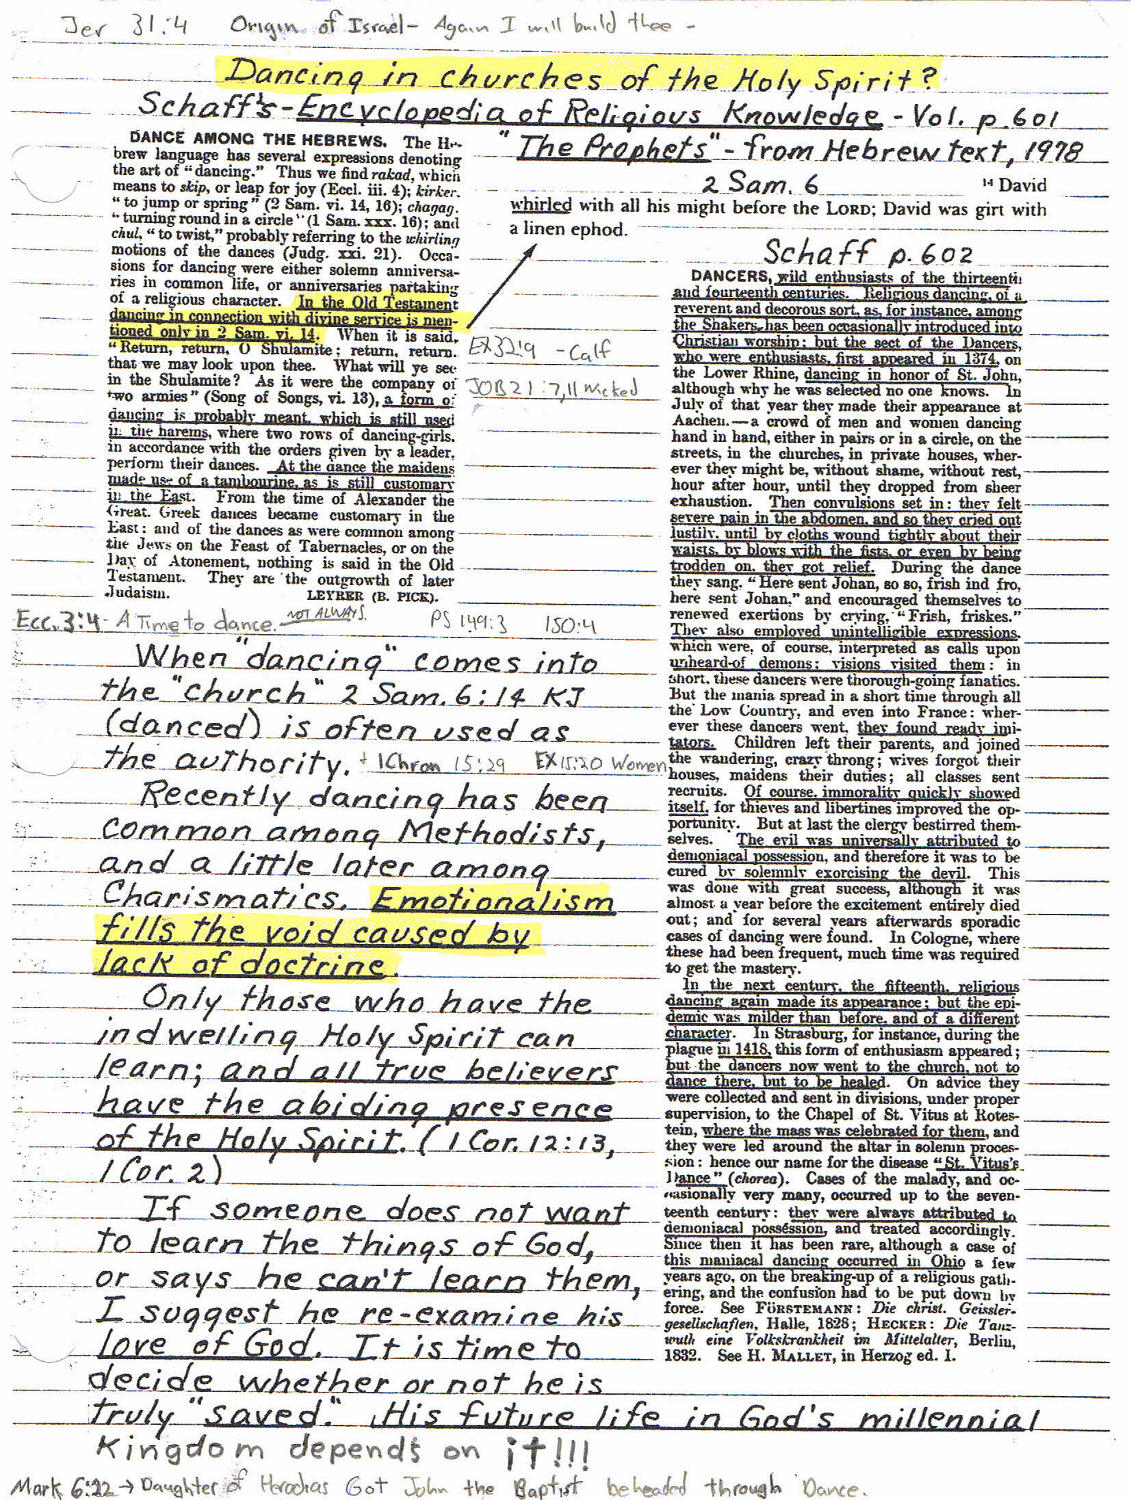 Jer 31:4 Origin of Israel - Again I will build thee -
Dancing in churches of the Holy Spirit?
Schaff's - Encyclopedia of Religious Knowledge - Vol. p. 601
DANCE AMONG THE HEBREWS. The He-
brew language has several expressions denoting
the art of "dancing." Thus we find rakad, which
means to skip, or leap for joy (Eccl. iii. 4); kirker,
"to jump or spring" (2 Sam. vi. 14, 16); chagag,
"turning round in a circle" (1 Sam. xxx. 16); and
chul, "to twist," probably referring to the whirling
motions of the dances (Judg. xxi. 21). Occa-
sions for dancing were either solemn anniversa-
ries in common life, or anniversaries partaking
of a religious character. In the Old Testament
dancing in connection with divine service is men-
tioned only in 2 Sam. vi. 14. When it is said,
"Return, return, O Shulamite; return, return,
that we may look upon thee. What will ye see
in the Shulamite? As it were the company of
two armies" (Song of Songs, vi. 13), a form of
dancing is probably meant, which is still used
in the harems, where two rows of dancing-girls,
in accordance with the orders given by a leader,
perform their dances. At the dance the maidens
made use of a tambourine, as is still customary
in the East. From the time of Alexander the
Great, Greek dances became customary in the
East; and of the dances as were common among
the Jews on the Feast of Tabernacles, or on the
Day of Atonement, nothing is said in the Old
Testament. They are the outgrowth of later
Judaism. LEYRER (B. PICK).
"The Prophets" - from Hebrew text, 1978
2 Sam. 6 14 David
whirled with all his might before the LORD; David was girt with
a linen ephod.
EX 32:9 - Calf
JOB 21:7,11 Wicked
Ecc. 3:4 - A Time to dance. NOT ALWAYS. PS 149:3 150:4
When "dancing" comes into
the "church" 2 Sam. 6:14 KJ
(danced) is often used as
the authority. + 1Chron 15:29 EX 15:20 Women
Recently dancing has been
common among Methodists,
and a little later among
Charismatics. Emotionalism
fills the void caused by
lack of doctrine.
Only those who have the
indwelling Holy Spirit can
learn; and all true believers
have the abiding presence
of the Holy Spirit. (1 Cor. 12:13,
1 Cor. 2)
If someone does not want
to learn the things of God,
or says he can't learn them,
I suggest he re-examine his
love of God. It is time to
decide whether or not he is
truly "saved." His future life in God's millennial
Kingdom depends on it!!!
Schaff p. 602
DANCERS, wild enthusiasts of the thirteenth
and fourteenth centuries. Religious dancing, of a
reverent and decorous sort, as, for instance, among
the Shakers, has been occasionally introduced into
Christian worship; but the sect of the Dancers,
who were enthusiasts, first appeared in 1374, on
the Lower Rhine, dancing in honor of St. John,
although why he was selected no one knows. In
July of that year they made their appearance at
Aachen,—a crowd of men and women dancing
hand in hand, either in pairs or in a circle, on the
streets, in the churches, in private houses, wher-
ever they might be, without shame, without rest,
hour after hour, until they dropped from sheer
exhaustion. Then convulsions set in; they felt
severe pain in the abdomen, and so they cried out
lustily, until by cloths wound tightly about their
waists, by blows with the fists, or even by being
trodden on, they got relief. During the dance
they sang, "Here sent Johan, so so, frish ind fro,
here sent Johan," and encouraged themselves to
renewed exertions by crying, "Frish, friskes."
They also employed unintelligible expressions,
which were, of course, interpreted as calls upon
unheard-of demons; visions visited them: in
short, these dancers were thorough-going fanatics.
But the mania spread in a short time through all
the Low Country, and even into France: wher-
ever these dancers went, they found ready imi-
tators. Children left their parents, and joined
the wandering, crazy throng; wives forgot their
houses, maidens their duties; all classes sent
recruits. Of course, immorality quickly showed
itself, for thieves and libertines improved the op-
portunity. But at last the clergy bestirred them-
selves. The evil was universally attributed to
demoniacal possession, and therefore it was to be
cured by solemnly exorcising the devil. This
was done with great success, although it was
almost a year before the excitement entirely died
out; and for several years afterwards sporadic
cases of dancing were found. In Cologne, where
these had been frequent, much time was required
to get the mastery.
In the next century, the fifteenth, religious
dancing again made its appearance; but the epi-
demic was milder than before, and of a different
character. In Strasburg, for instance, during the
plague in 1418, this form of enthusiasm appeared;
but the dancers now went to the church, not to
dance there, but to be healed. On advice they
were collected and sent in divisions, under proper
supervision, to the Chapel of St. Vitus at Rotes-
tein, where the mass was celebrated for them, and
they were led around the altar in solemn proces-
sion: hence our name for the disease "St. Vitus's
Dance" (chorea). Cases of the malady, and oc-
casionally very many, occurred up to the seven-
teenth century: they were always attributed to
demoniacal possession, and treated accordingly.
Since then it has been rare, although a case of
this maniacal dancing occurred in Ohio a few
years ago, on the breaking-up of a religious gath-
ering, and the confusion had to be put down by
force. See FÜRSTEMANN: Die christ. Geissler-
gesellschaften, Halle, 1828; HECKER: Die Tanz-
wuth eine Volkskrankheit im Mittelalter, Berlin,
1832. See H. MALLET, in Herzog ed. I.
Mark 6:22 → Daughter of Herodias Got John the Baptist beheaded through Dance.